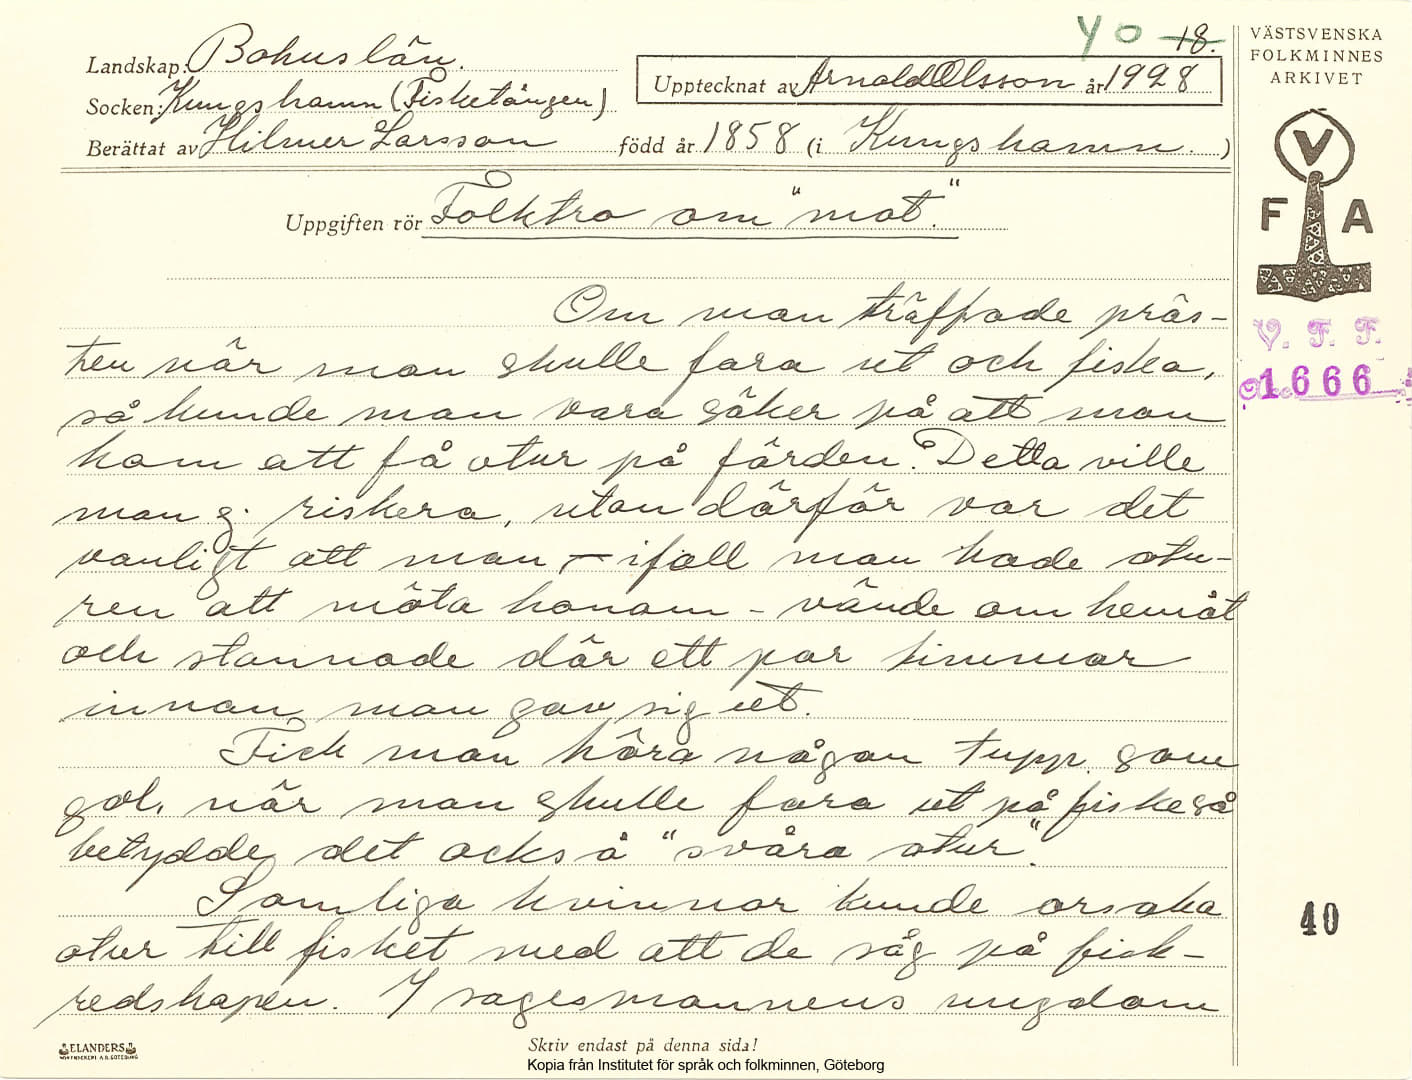 40 18.
Landskap: Bohuslän.
Socken: Kungshamn (Fisketången)
Upptecknat av Arnold Olsson år 1928
Berättat av Hilmer Larsson född år 1858 (i Kungshamn.)
Uppgiften rör Folktro om "mot".
Om man träffade präs-
ten när man skulle fara ut och fiska,
så kunde man vara säker på att man
kom att få otur på färden. Detta ville
man ej riskera, utan därför var det
vanligt att man – ifall man hade otu-
ren att möta honom – vände om hemåt
och stannade där ett par timmar
innan man gav sig ut.
Fick man höra någon tupp som
gol, när man skulle fara ut på fiske så
betydde det också "svåra otur".
Somliga kvinnor kunde orsaka
otur till fisket med att de såg på fisk-
redskapen. I sagesmannens ungdom
Skriv endast på denna sida!
ELANDERS
BOKTRYCKERI A.B. GÖTEBORG
Kopia från Institutet för språk och folkminnen, Göteborg
VÄSTSVENSKA
FOLKMINNES
ARKIVET
V
F A
V. F. F.
1666
40